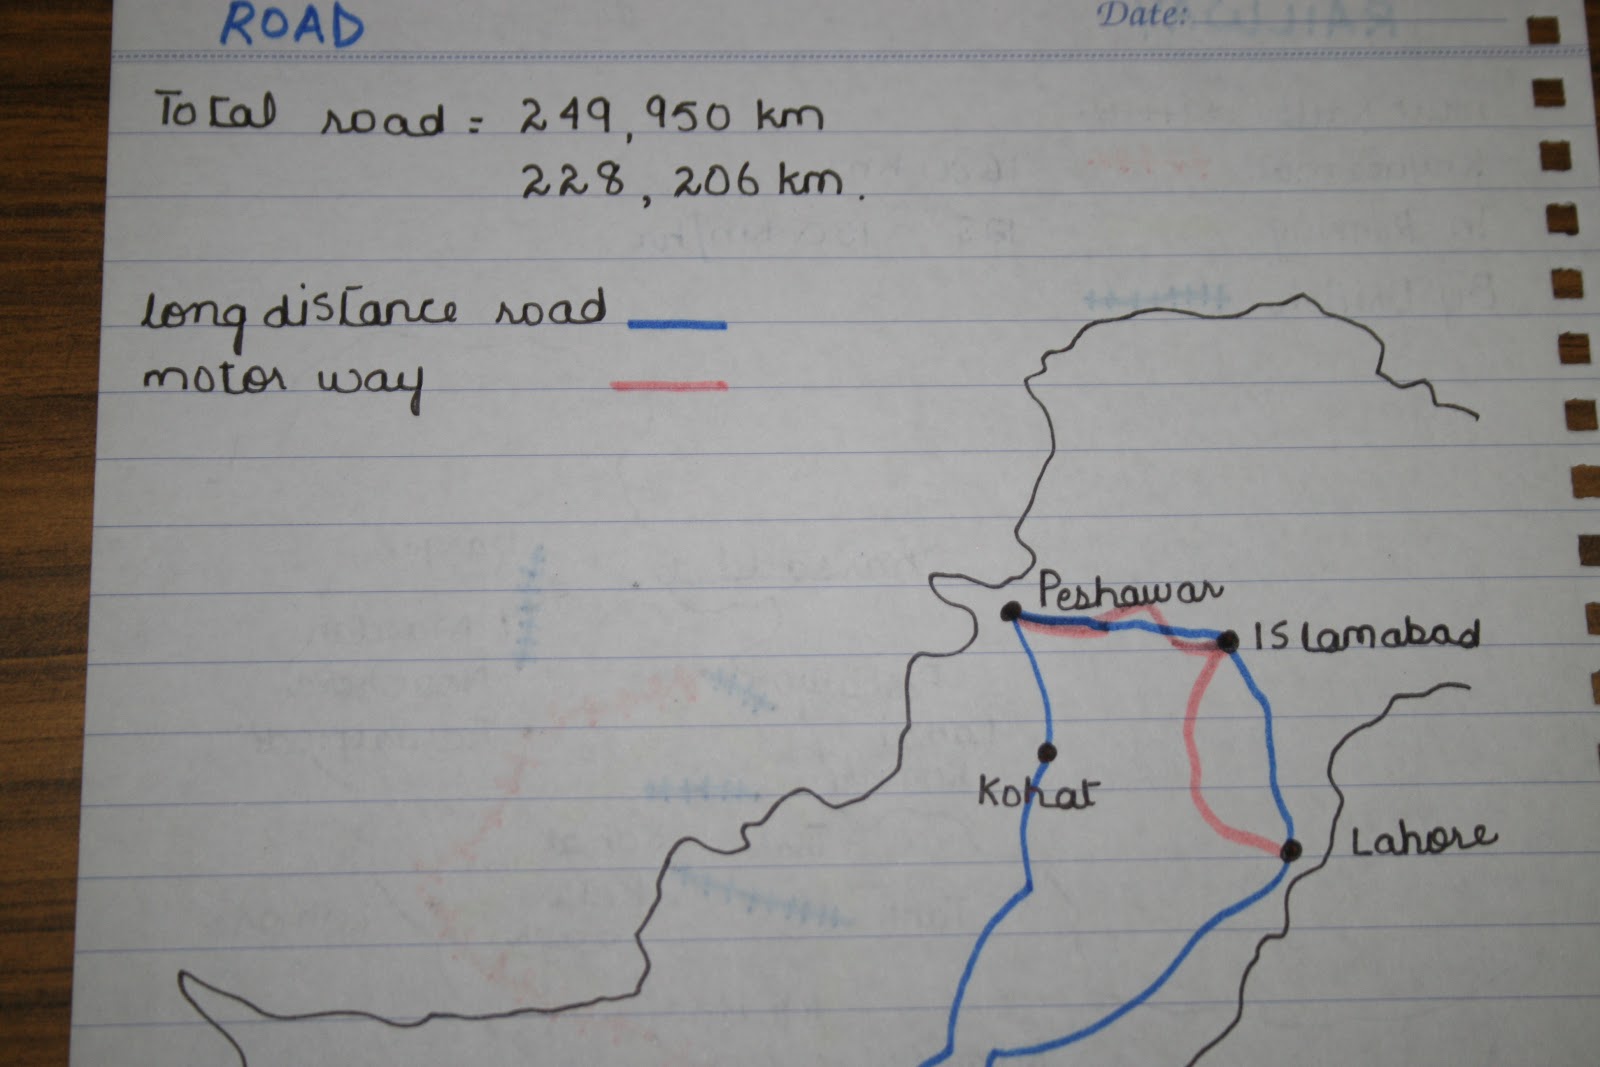 ROAD
Date:
Total road = 249,950 km
228,206 km.
long distance road
motor way
Peshawar
ISlamabad
Kohat
Lahore